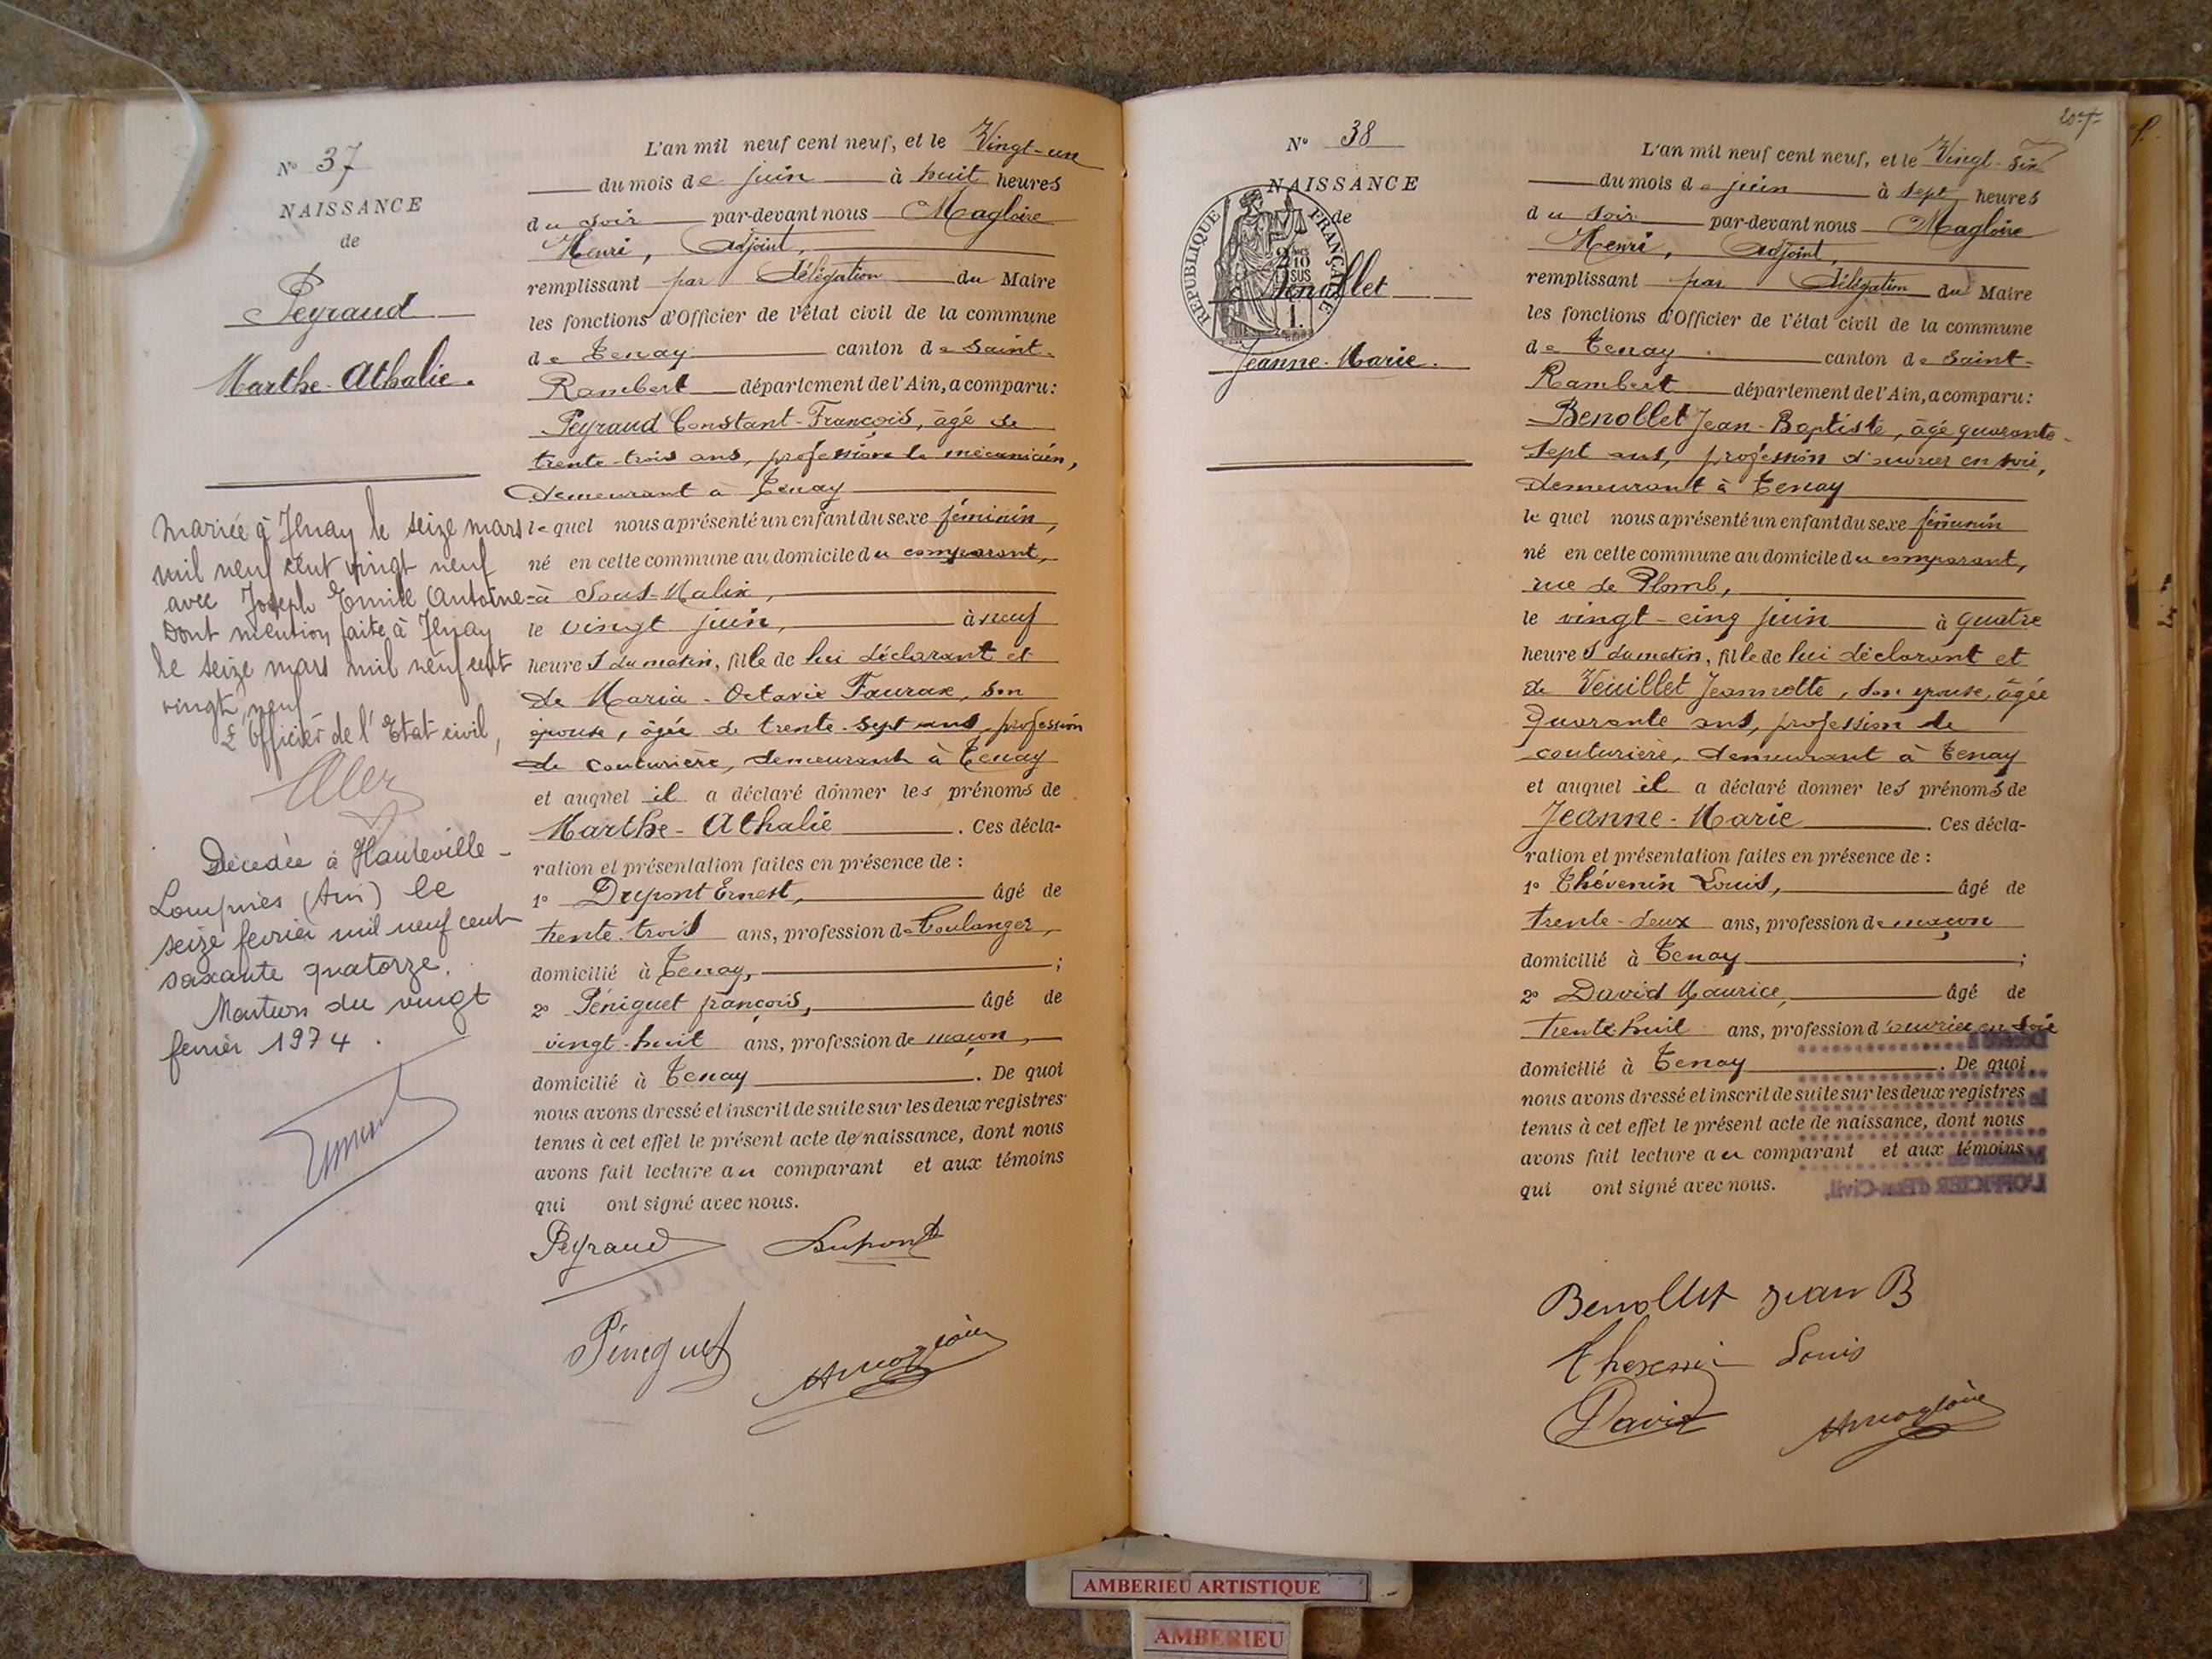 N° 37
NAISSANCE
de
Peyraud
Marthe-Athalie.
Mariée à Tenay le seize mars
mil neuf cent vingt neuf
avec Joseph Emile Antoine
Dont mention faite à Tenay
le seize mars mil neuf cent
vingt neuf
L'Officier de l'Etat civil,
Décédée à Hauteville-
Lompnes (Ain) le
seize fevrier mil neuf cent
soixante quatorze.
Mention du vingt
fevrier 1974.
L'an mil neuf cent neuf, et le Vingt-un
du mois de juin à huit heures
du soir par-devant nous Magloire
Henri, Adjoint,
remplissant par délégation du Maire
les fonctions d'Officier de l'état civil de la commune
de Tenay canton de Saint-
Rambert département de l'Ain, a comparu:
Peyraud Constant-François, âgé de
trente-trois ans, profession de mécanicien,
demeurant à Tenay
lequel nous a présenté un enfant du sexe féminin,
né en cette commune au domicile du comparant,
à Sous-Malix,
le vingt juin, à neuf
heures du matin, fille de lui déclarant et
de Maria-Octavie Faurax, son
épouse, âgée de trente-sept ans, profession
de couturière, demeurant à Tenay
et auquel il a déclaré donner les prénoms de
Marthe-Athalie. Ces décla-
ration et présentation faites en présence de:
1° Dupont Ernest, âgé de
trente-trois ans, profession de boulanger,
domicilié à Tenay, ;
2° Péniguet françois, âgé de
vingt-huit ans, profession de maçon,
domicilié à Tenay. De quoi
nous avons dressé et inscrit de suite sur les deux registres
tenus à cet effet le présent acte de naissance, dont nous
avons fait lecture au comparant et aux témoins
qui ont signé avec nous.
Peyraud Dupont
Péniguet HMagloire
207
N° 38
NAISSANCE
de
REPUBLIQUE FRANÇAISE
2/10 SUS
1.
Benollet
Jeanne-Marie.
L'an mil neuf cent neuf, et le Vingt-six
du mois de juin à sept heures
du soir par-devant nous Magloire
Henri, Adjoint,
remplissant par délégation du Maire
les fonctions d'Officier de l'état civil de la commune
de Tenay canton de Saint-
Rambert département de l'Ain, a comparu:
Benollet Jean-Baptiste, âgé quarante-
sept ans, profession d'ouvrier en soie,
demeurant à Tenay
lequel nous a présenté un enfant du sexe féminin
né en cette commune au domicile du comparant,
rue de Plomb,
le vingt-cinq juin à quatre
heures du matin, fille de lui déclarant et
de Veuillet Jeannette, son épouse, âgée
quarante ans, profession de
couturière, demeurant à Tenay
et auquel il a déclaré donner les prénoms de
Jeanne-Marie. Ces décla-
ration et présentation faites en présence de:
1° Thévenin Louis, âgé de
trente-deux ans, profession de maçon
domicilié à Tenay ;
2° David Maurice, âgé de
trente-huit ans, profession d'ouvrier en soie
domicilié à Tenay. De quoi
nous avons dressé et inscrit de suite sur les deux registres
tenus à cet effet le présent acte de naissance, dont nous
avons fait lecture au comparant et aux témoins
qui ont signé avec nous.
L'OFFICIER d'Etat-Civil,
Benollet Jean B
Thevenin Louis
David HMagloire
AMBERIEU ARTISTIQUE
AMBERIEU